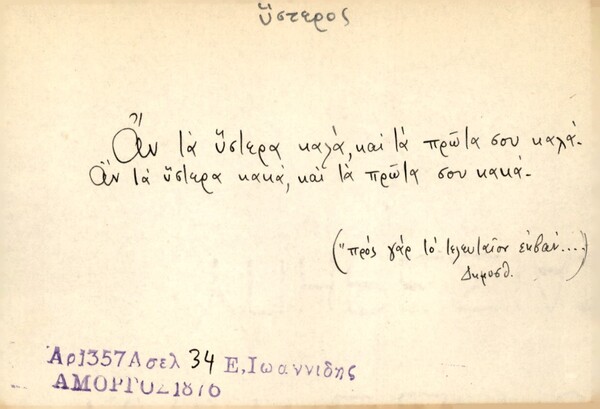 ὕστερος
Ἂν τὰ ὕστερα καλά, καὶ τὰ πρῶτα σου καλά.
Ἂν τὰ ὕστερα κακά, καὶ τὰ πρῶτα σου κακά.
("πρός γάρ τὸ τελευταῖον ἐκβαν....
Δημοσθ.)
Αρ1357Ασελ 34 Ε,Ιωαννιδης
ΑΜΟΡΓΟΣ1876